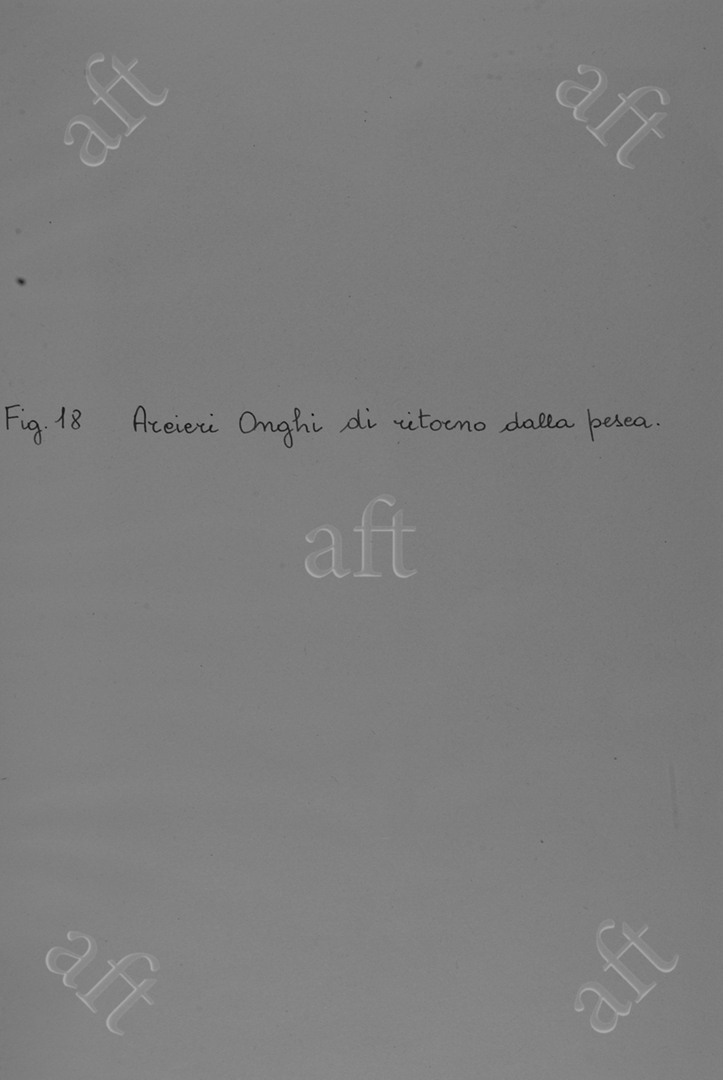 aft
aft
Fig. 18 Arcieri Onghi di ritorno dalla pesca.
aft
aft
aft